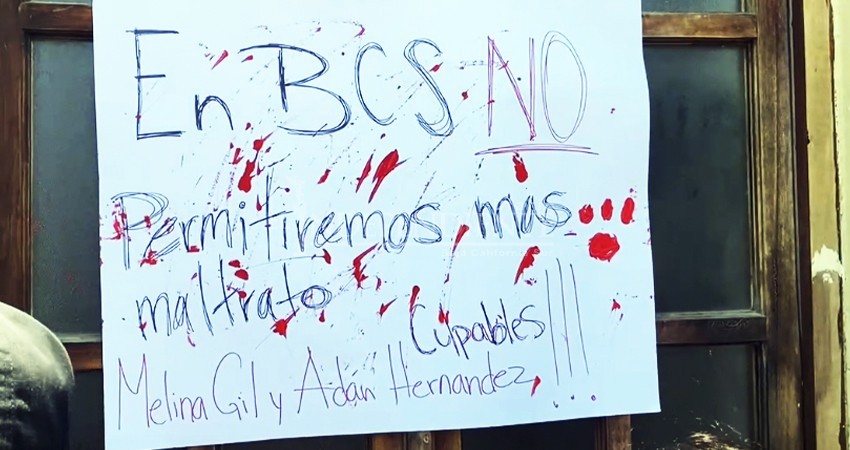 En BCS NO
Permitiremos mas
maltrato
Culpables!!!
Melina Gil y Adán Hernandez